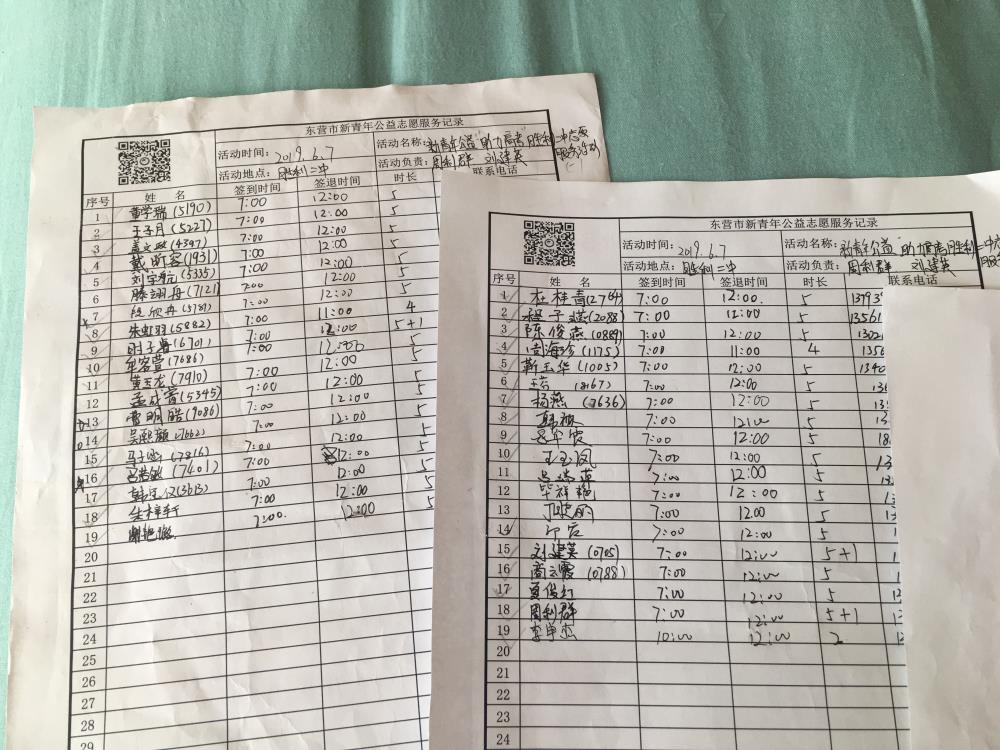 东营市新青年公益志愿服务记录
活动时间： 2019.6.7 活动名称： 新青年公益"助力高考"胜利二中志愿
服务活动
活动地点： 胜利二中 活动负责： 周利群 刘建英
序号 姓 名 签到时间 签退时间 时长 联系电话
1 黄学瑞(5190) 7:00 12:00 5
2 王子月(5227) 7:00 12:00 5
3 盖文政(4397) 7:00 12:00 5
4 戴昕容(1931) 7:00 12:00 5
5 刘宇航(5335) 7:00 12:00 5
6 滕翊舟(7121) 7:00 12:00 5
7 段欣冉(5789) 7:00 11:00 4
8 朱虹羽(5882) 7:00 12:00 5+1
9 (6701) 7:00 5
10 (7686) 7:00 12:00 5
11 黄玉龙(7910) 7:00 12:00 5
12 孟成萱(5345) 7:00 12:00 5
13 曹明皓(9086) 7:00 12:00 5
14 吴熙颜(7662) 7:00 12:00 5
15 (7816) 7:00 12:00 5
16 (7401) 7:00 12:00 5
17 (3613) 7:00 12:00 5
18 7:00. 12:00 5
19
20
21
22
23
24
25
26
27
28
29
东营市新青年公益志愿服务记录
活动时间： 2019.6.7 活动名称： 新青年公益"助力高考"胜利二中
活动地点： 胜利二中 活动负责： 周利群 刘建英
序号 姓 名 签到时间 签退时间 时长 联系电话
1 杜桂青(2764) 7:00 12:00. 5
2 程子燕(2088) 7:00 12:00 5 13561
3 陈俊燕(0889) 7:00 12:00 5 1302
4 周海珍(1175) 7:00 11:00 4 1356
5 靳玉华(1005) 7:00 12:00 5 1340
6 (8167) 7:00 12:00 5
7 杨燕(7636) 7:00 12:00 5
8 7:00 12:00 5
9 7:00 12:00 5
10 王玉凤 7:00 12:00 5
11 7:00 12:00 5
12 7:00 12:00 5
13 7:00 12:00 5
14 7:00 12:00 5
15 刘建英(0705) 7:00 12:00 5+1
16 商云霞(0788) 7:00 12:00 5
17 夏俊红 7:00 12:00 5
18 周利群 7:00 12:00 5+1
19 10:00 12:00 2
20
21
22
23
24